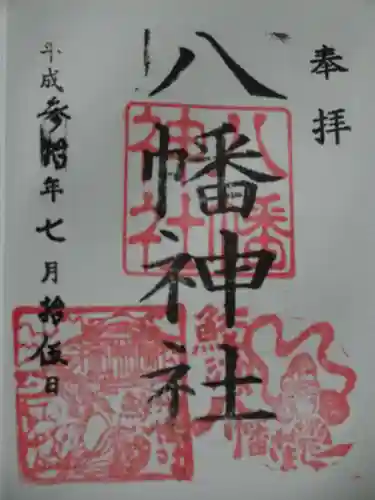 奉拝
八幡神社
八幡
神社
平成参拾年七月拾伍日